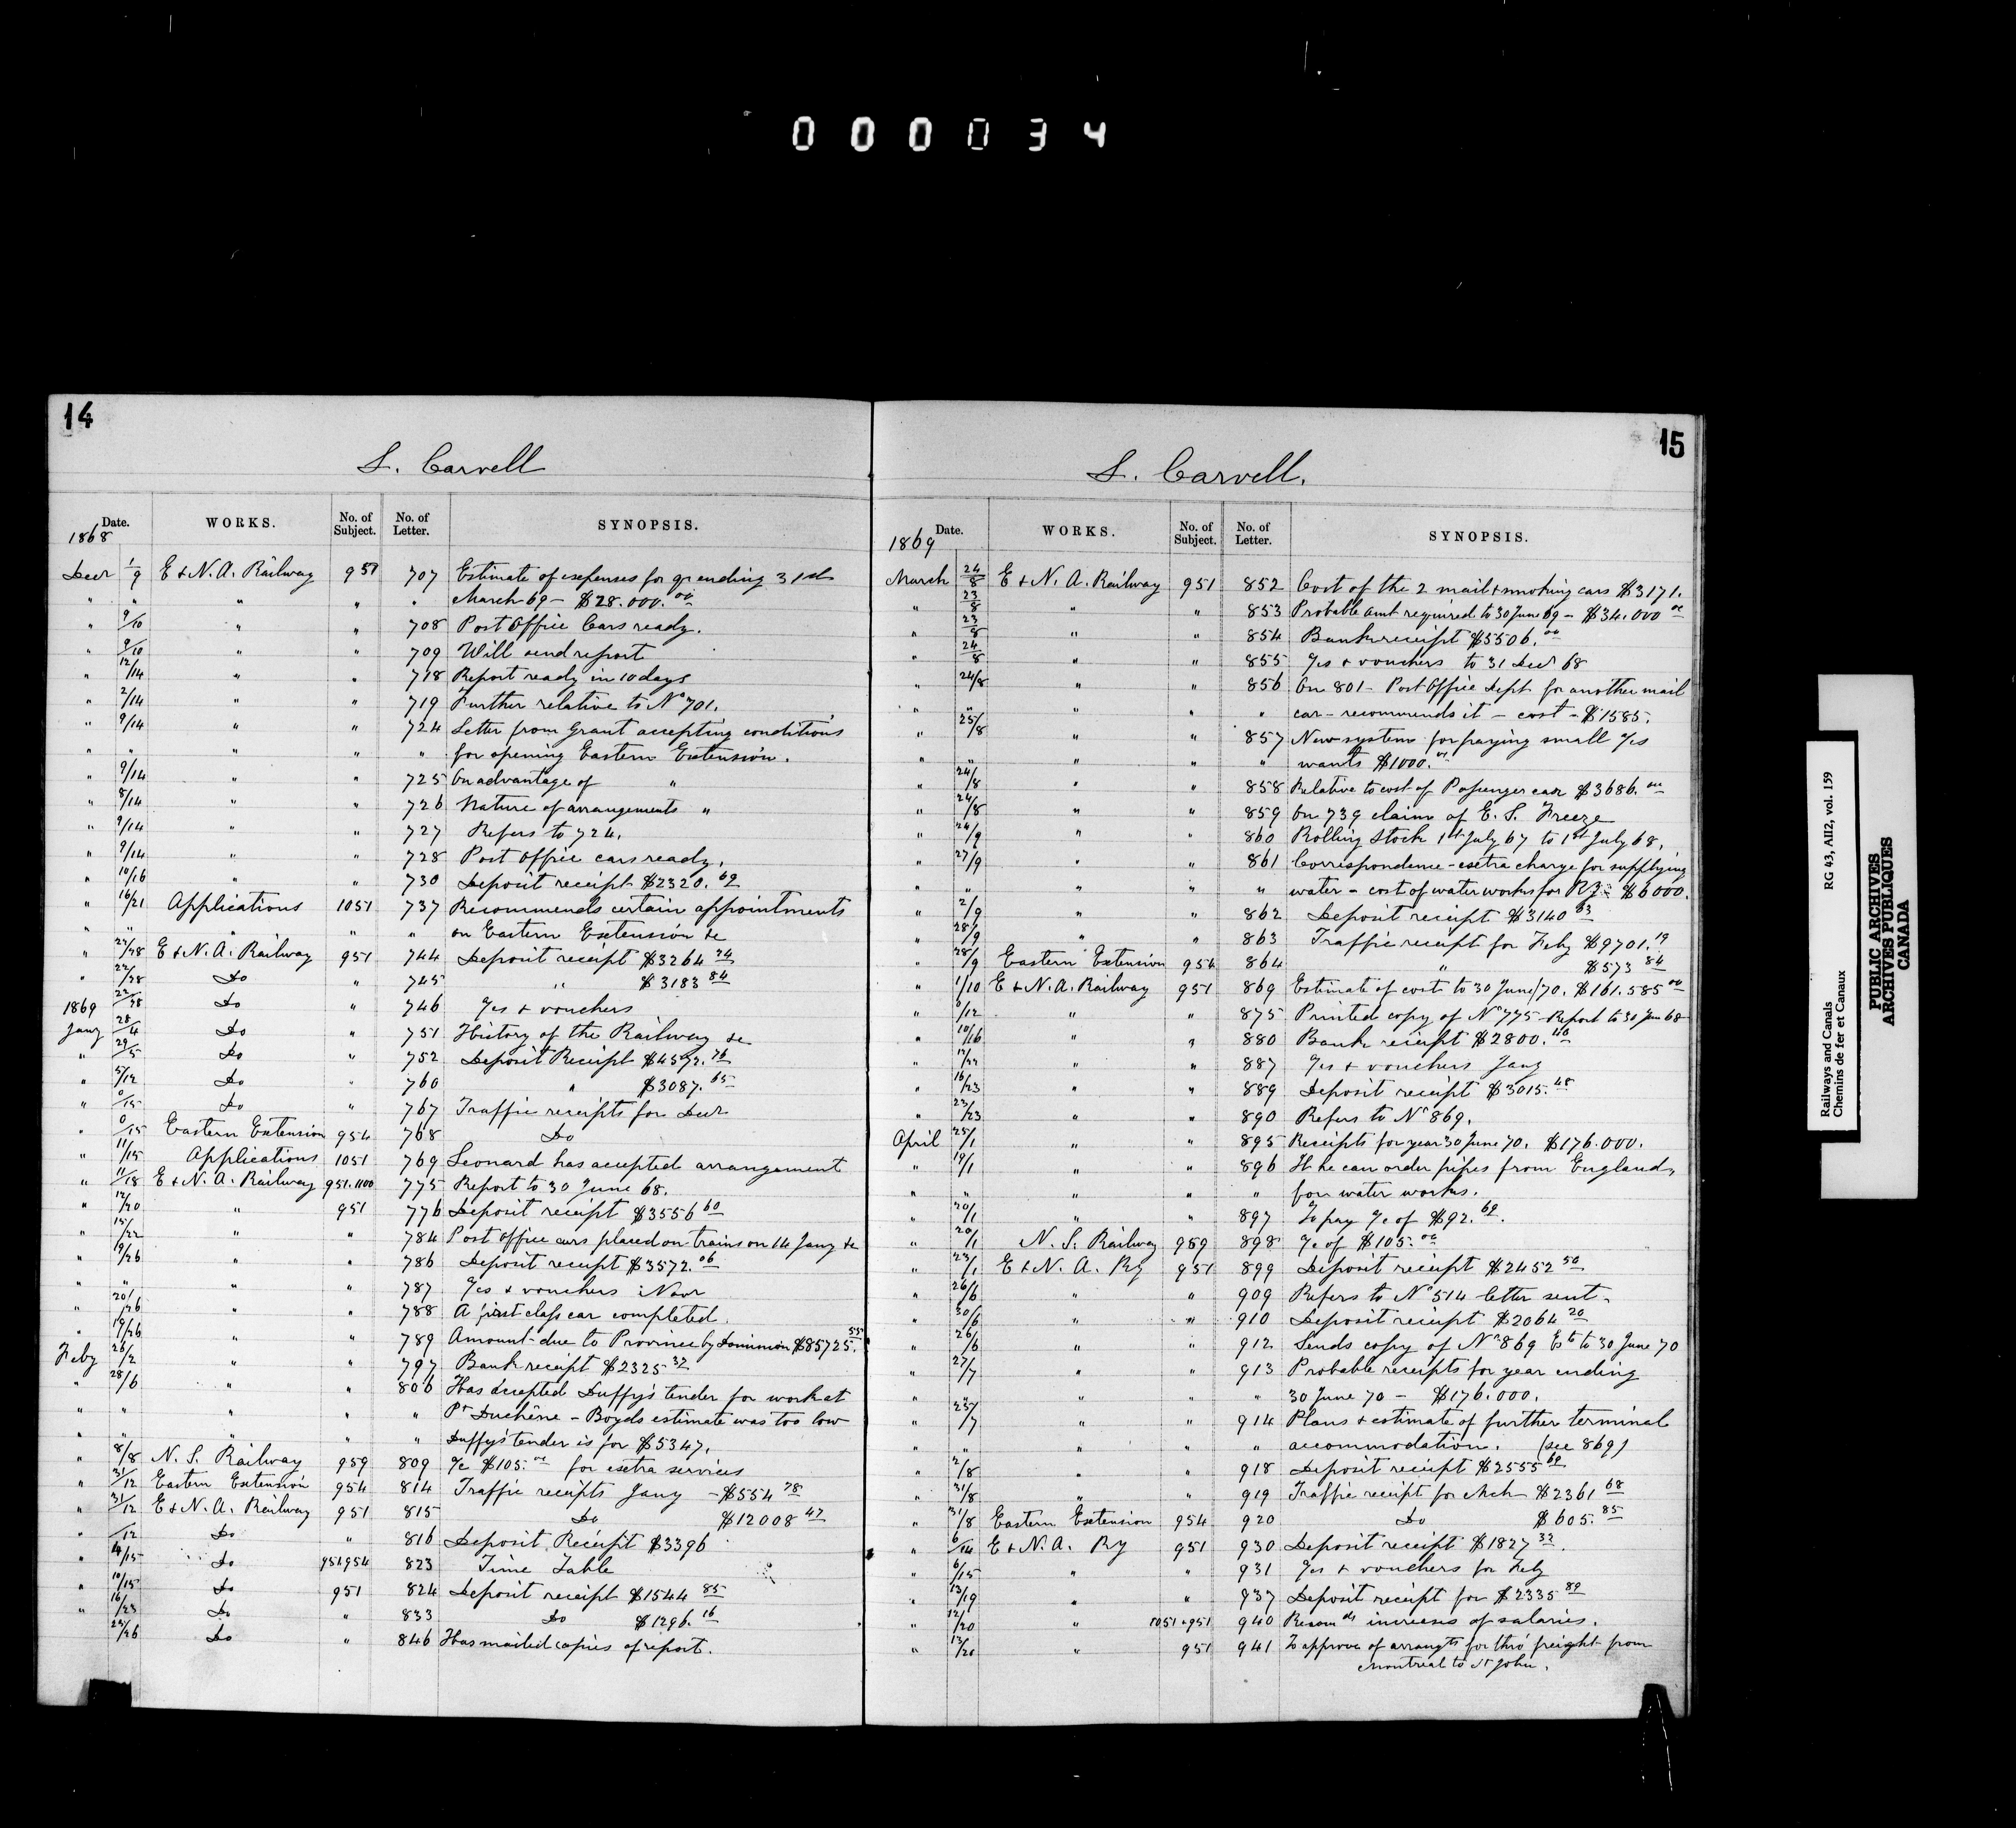 000034
14
L. Carvell
Date. WORKS. No. of Subject. No. of Letter. SYNOPSIS.
1868
Decr 1/9 E & N. A. Railway 951 707 Estimate of expenses for qr ending 31st
" " " " " March 69 - $28.000.00
" 9/10 " " 708 Post Office Cars ready.
" 9/10 " " 709 Will send report
" 12/14 " " 718 Report ready in 10 days
" 2/14 " " 719 Further relative to No 701.
" 9/14 " " 724 Letter from Grant accepting conditions
" " " " " for opening Eastern Extension.
" 9/14 " " 725 On advantage of "
" 8/14 " " 726 Nature of arrangements "
" 9/14 " " 727 Refers to 724.
" 9/14 " " 728 Post Office cars ready.
" 10/16 " " 730 Deposit receipt $2320.69
" 16/21 Applications 1051 737 Recommends certain appointments
" " " " " on Eastern Extension &c
" 27/28 E & N. A. Railway 951 744 Deposit receipt $3264 34
" 22/28 Do " 745 " $3183 84
1869 22/28 Do " 746 a/cs & vouchers
Jany 28/4 Do " 751 History of the Railway &c
" 29/5 Do " 752 Deposit Receipt $4592.76
" 5/12 Do " 760 " $3087.65
" /15 Do " 767 Traffic receipts for Decr
" /15 Eastern Extension 954 768 Do
" 11/15 Applications 1051 769 Leonard has accepted arrangement
" 11/18 E & N. A. Railway 951.1100 775 Report to 30 June 68.
" 12/20 " 951 776 Deposit receipt $3556 60
" 15/22 " " 784 Post Office cars placed on trains on 14 Jany &c
" 19/26 " " 786 Deposit receipt $3572.06
" " " " 787 a/cs & vouchers Novr
" 20/26 " " 788 A first class car completed.
" 19/26 " " 789 Amount due to Province by Dominion $85725.53
Feby 26/2 " " 797 Bank receipt $2325 32
" 28/6 " " 806 Has accepted Duffy's tender for work at
" " " " " Pt Duchêne - Boyds estimate was too low
" " " " " Duffy's tender is for $5347.
" 8/8 N. S. Railway 959 809 a/c $105.00 for extra services
" 31/12 Eastern Extension 954 814 Traffic receipts Jany - $554 78
" 31/12 E & N. A. Railway 951 815 Do $12008 47
" /12 Do " 816 Deposit Receipt $3396
" 14/15 Do 951.954 823 Time Table
" 10/15 Do 951 824 Deposit receipt $1544 85
" 16/23 Do " 833 Do $1296.16
" 22/26 Do " 846 Has mailed copies of report.
15
L. Carvell.
Date. WORKS. No. of Subject. No. of Letter. SYNOPSIS.
1869
March 24/8 E & N. A. Railway 951 852 Cost of the 2 mail & smoking cars $3171.
" 23/8 " " 853 Probable amt required to 30 June 69 - $34.000 00
" 23/8 " " 854 Bank receipt $5506.00
" 24/8 " " 855 a/cs & vouchers to 31 Decr 68
" 24/8 " " 856 On 801 - Post Office Dept for another mail
" " " " " car - recommends it - cost - $1585.
" 25/8 " " 857 New system for paying small a/cs
" " " " " wants $1000.00
" 24/8 " " 858 Relative to cost of Passenger car $3686.00
" 24/8 " " 859 On 739 claim of E. S. Freeze
" 24/9 " " 860 Rolling Stock 1st July 67 to 1st July 68.
" 27/9 " " 861 Correspondence - extra charge for supplying
" " " " " water - cost of water works for Ry - $6000.
" 2/9 " " 862 Deposit receipt $3140 63
" 28/9 " " 863 Traffic receipt for Feby $9701.19
" 28/9 Eastern Extension 954 864 " $573 84
" 1/10 E & N. A. Railway 951 869 Estimate of cost to 30 June/70. $161.585 00
" 6/12 " " 875 Printed copy of No 775 - Report to 30 Jun 68
" 10/16 " " 880 Bank receipt $2800.46
" 17/22 " " 887 a/cs & vouchers Jany
" 16/23 " " 889 Deposit receipt $3015.48
" 23/23 " " 890 Refers to No 869.
April 25/1 " " 895 Receipts for year 30 June 70. $176.000.
" 19/1 " " 896 If he can order pipes from England
" " " " " for water works.
" 20/1 " " 897 To pay a/c of $92.69.
" 20/1 N. S. Railway 959 898 a/c of $105.00
" 23/1 E & N. A. Ry 951 899 Deposit receipt $2452 50
" 26/6 " " 909 Refers to No 514 letter sent.
" 30/6 " " 910 Deposit receipt $2064 20
" 26/6 " " 912 Sends copy of No 869 Este to 30 June 70
" 27/7 " " 913 Probable receipts for year ending
" " " " " 30 June 70 - $176.000.
" 23/7 " " 914 Plans & estimate of further terminal
" " " " " accommodation. (see 869)
" 2/8 " " 918 Deposit receipt $2555 69
" 31/8 " " 919 Traffic receipt for Mch $2361 68
" 31/8 Eastern Extension 954 920 Do $605.85
" 6/14 E & N. A. Ry 951 930 Deposit receipt $1827 33.
" 6/15 " " 931 a/cs & vouchers for Feby
" 13/19 " " 937 Deposit receipt for $2335 89
" 12/20 " 1051 & 951 940 Recomds increase of salaries.
" 13/20 " 951 941 To approve of arrangts for thro' freight from
Montreal to St John.
Railways and Canals RG 43, AII2, vol. 159
Chemins de fer et Canaux
PUBLIC ARCHIVES
ARCHIVES PUBLIQUES
CANADA